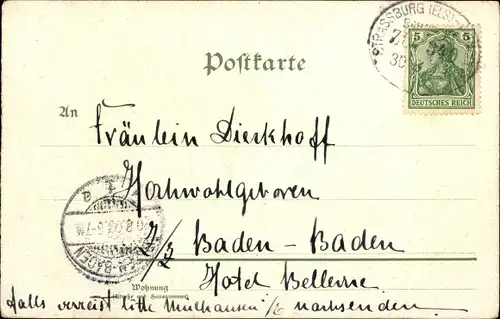 STRASSBURG (ELS)
Postkarte
5 5
DEUTSCHES REICH
An
Fräulein Dieckhoff
Hochwohlgeboren
z/Z Baden-Baden
BADEN-BADEN
Hotel Bellevue
Wohnung
(Straße und Hausnummer)
falls verreist bitte Mülhausen i/E nachsenden.